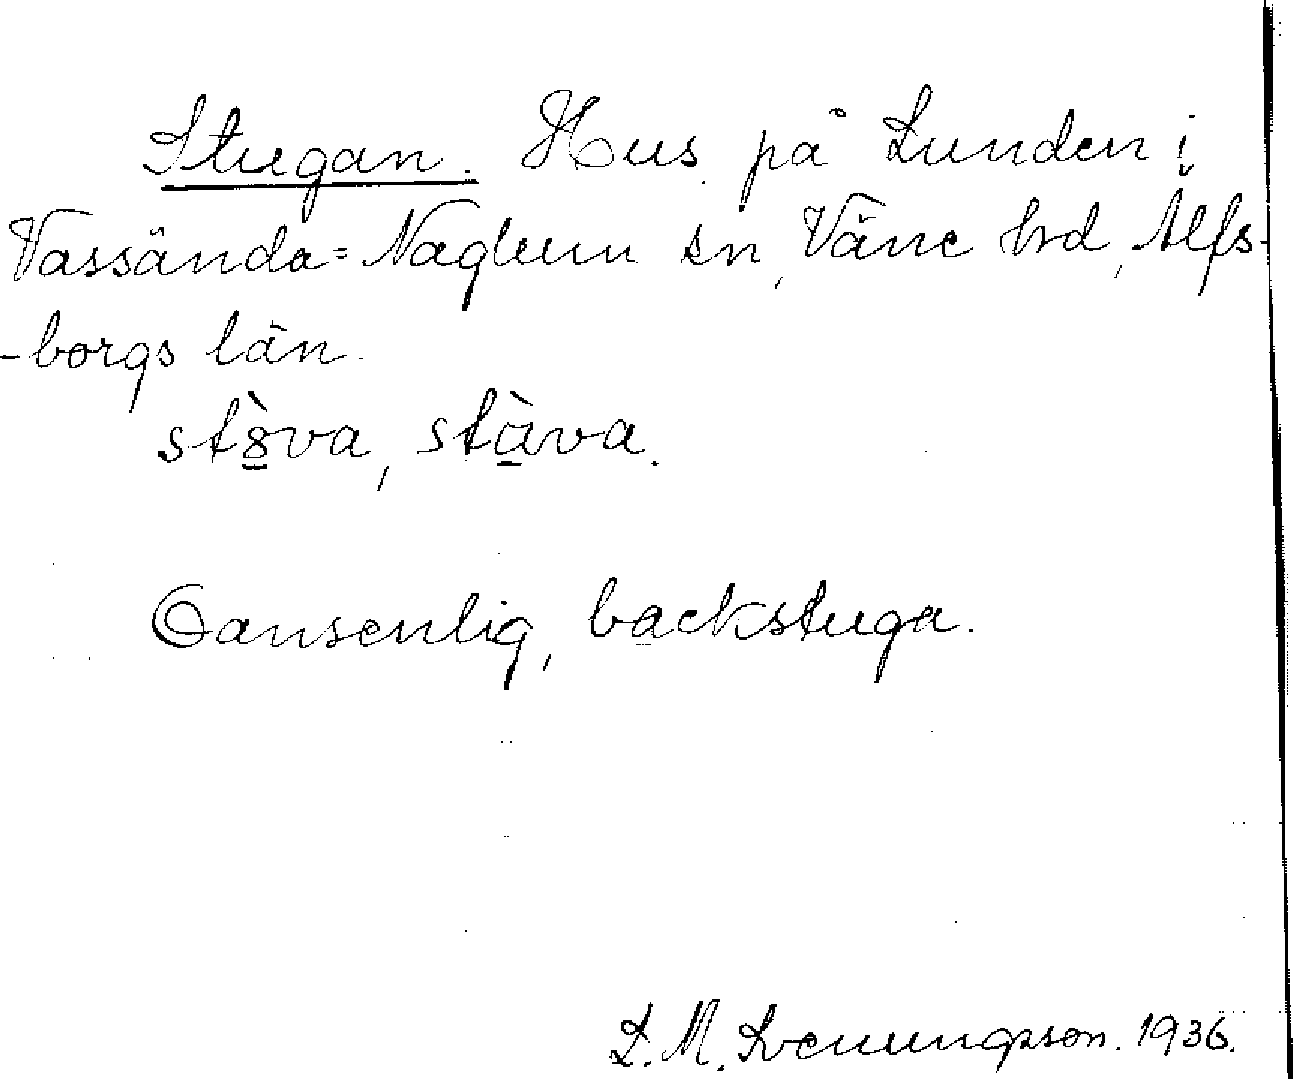 Stugan. Hus på Lunden i
Vassända=Naglum sn, Väne hd, Älfs-
-borgs län.
stòva, stàva.
Oansenlig, backstuga.
L. M. Svenungsson. 1936.